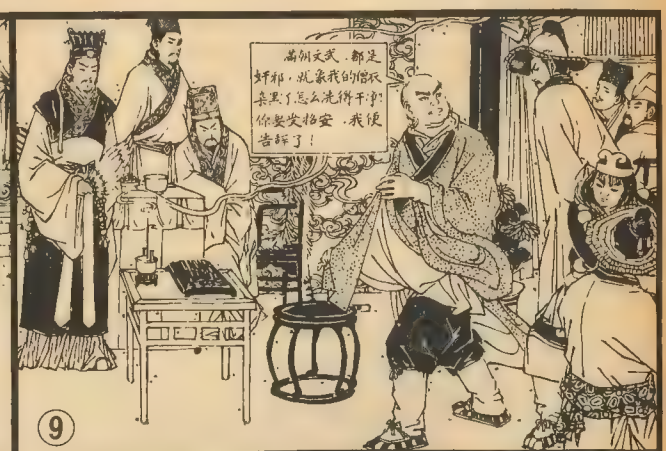 满朝文武，都是
奸邪，就象我的僧衣
染黑了怎么洗得干净
你要受招安，我便
告辞了！
⑨